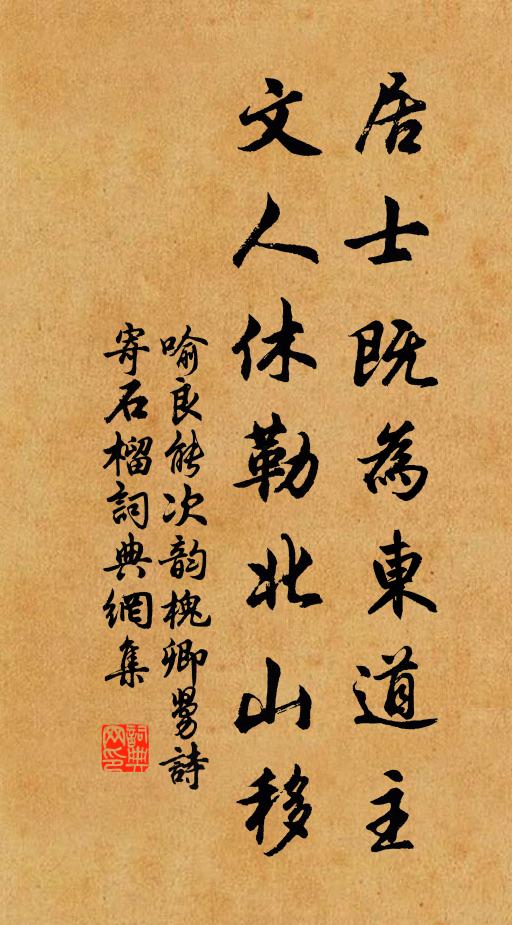 居士既為東道主
文人休勒北山移
喻良能次韵槐卿舅詩
寄石榴詞典網集
詞典
网印